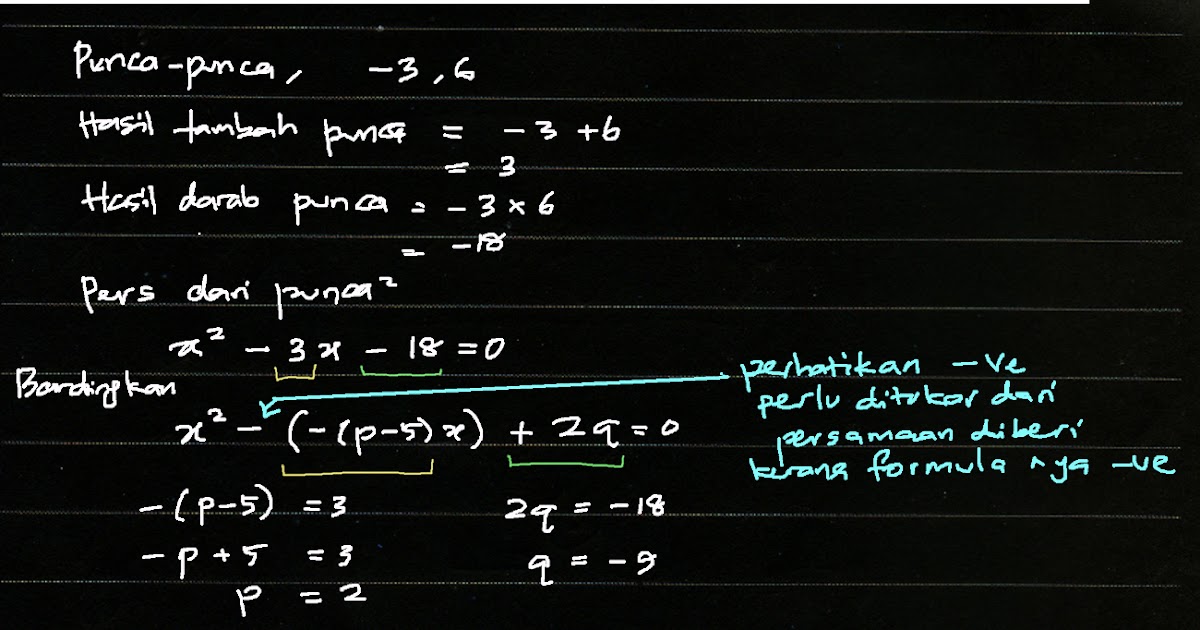 Punca-punca, -3, 6
Hasil tambah punca = -3 + 6
= 3
Hasil darab punca = -3 × 6
= -18
Pers dari punca²
x² - 3x - 18 = 0
Bandingkan
x² - (-(p-5)x) + 2q = 0
perhatikan -ve
perlu ditukar dari
persamaan diberi
kerana formula nya -ve
-(p-5) = 3
2q = -18
-p + 5 = 3
q = -9
p = 2